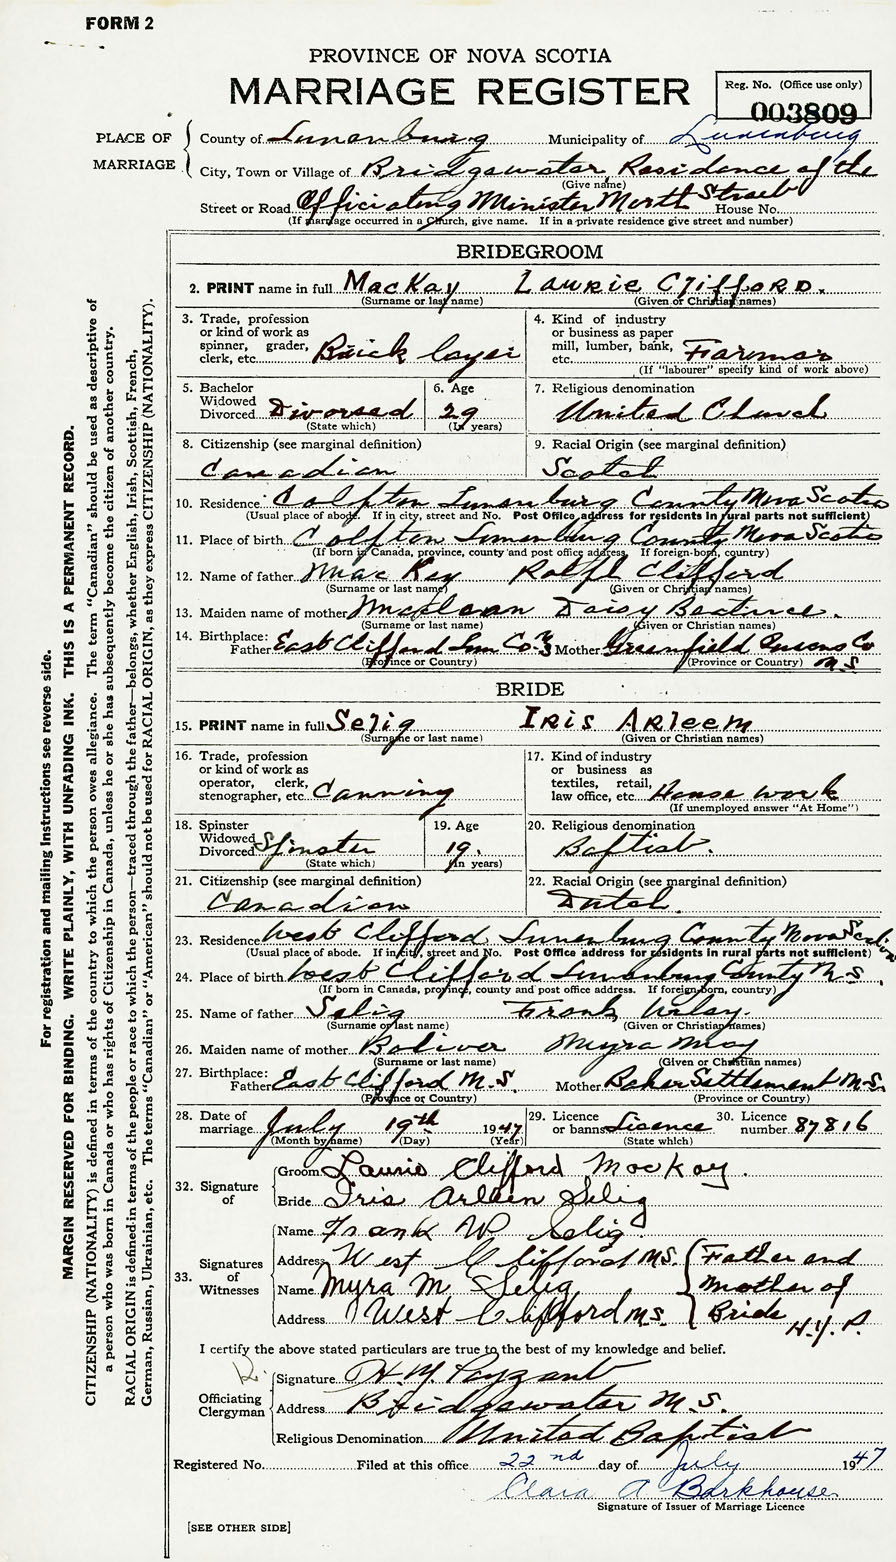 FORM 2
PROVINCE OF NOVA SCOTIA
MARRIAGE REGISTER
Reg. No. (Office use only)
003809
PLACE OF MARRIAGE
County of Lunenburg Municipality of Lunenburg
City, Town or Village of Bridgewater, Residence of the
(Give name)
Street or Road Officiating Minister North Street House No.
(If marriage occurred in a Church, give name. If in a private residence give street and number)
BRIDEGROOM
2. PRINT name in full MacKay Laurie Clifford.
(Surname or last name) (Given or Christian names)
3. Trade, profession or kind of work as spinner, grader, clerk, etc. Brick layer
4. Kind of industry or business as paper mill, lumber, bank, etc. Farmer
(If "labourer" specify kind of work above)
5. Bachelor Widowed Divorced Divorsed
(State which)
6. Age 29
(In years)
7. Religious denomination
United Church
8. Citizenship (see marginal definition)
Canadian
9. Racial Origin (see marginal definition)
Scotch
10. Residence Colpton Lunenburg County Nova Scotia
(Usual place of abode. If in city, street and No. Post Office address for residents in rural parts not sufficient)
11. Place of birth Colpton Lunenburg County Nova Scotia
(If born in Canada, province, county and post office address. If foreign-born, country)
12. Name of father MacKay Ralph Clifford
(Surname or last name) (Given or Christian names)
13. Maiden name of mother Daisy Beatrice.
(Surname or last name) (Given or Christian names)
14. Birthplace: Father East Clifford Lun Co. Mother Greenfield Queens Co N.S.
(Province or Country) (Province or Country)
BRIDE
15. PRINT name in full Selig Iris Arleem
(Surname or last name) (Given or Christian names)
16. Trade, profession or kind of work as operator, clerk, stenographer, etc. Canning
17. Kind of industry or business as textiles, retail, law office, etc. House work
(If unemployed answer "At Home")
18. Spinster Widowed Divorced Spinster
(State which)
19. Age 19.
(In years)
20. Religious denomination
Baptist.
21. Citizenship (see marginal definition)
Canadian
22. Racial Origin (see marginal definition)
Dutch.
23. Residence West Clifford Lunenburg County Nova Scotia
(Usual place of abode. If in city, street and No. Post Office address for residents in rural parts not sufficient)
24. Place of birth West Clifford Lunenburg County N.S.
(If born in Canada, province, county and post office address. If foreign-born, country)
25. Name of father Selig Frank
(Surname or last name) (Given or Christian names)
26. Maiden name of mother Boliver Myra May
(Surname or last name) (Given or Christian names)
27. Birthplace: Father East Clifford N.S. Mother Baker Settlement N.S.
(Province or Country) (Province or Country)
28. Date of marriage July 19th 1947
(Month by name) (Day) (Year)
29. Licence or banns Licence
(State which)
30. Licence number 87816
32. Signature of
Groom Laurie Clifford MacKay.
Bride Iris Arleen Selig
33. Signatures of Witnesses
Name Frank W Selig.
Address West Clifford N.S.
Name Myra M Selig
Address West Clifford N.S.
Father and
Mother of
Bride
H.Y.P.
I certify the above stated particulars are true to the best of my knowledge and belief.
Officiating Clergyman
Signature H.Y. Payzant
Address Bridgewater N.S.
Religious Denomination United Baptist
Registered No. Filed at this office 22nd day of July 1947
Clara A Barkhouse
Signature of Issuer of Marriage Licence
[SEE OTHER SIDE]
For registration and mailing instructions see reverse side.
MARGIN RESERVED FOR BINDING. WRITE PLAINLY, WITH UNFADING INK. THIS IS A PERMANENT RECORD.
CITIZENSHIP (NATIONALITY) is defined in terms of the country to which the person owes allegiance. The term "Canadian" should be used as descriptive of
a person who was born in Canada or who has rights of Citizenship in Canada, unless he or she has subsequently become the citizen of another country.
RACIAL ORIGIN is defined in terms of the people or race to which the person—traced through the father—belongs, whether English, Irish, Scottish, French,
German, Russian, Ukrainian, etc. The terms "Canadian" or "American" should not be used for RACIAL ORIGIN, as they express CITIZENSHIP (NATIONALITY).